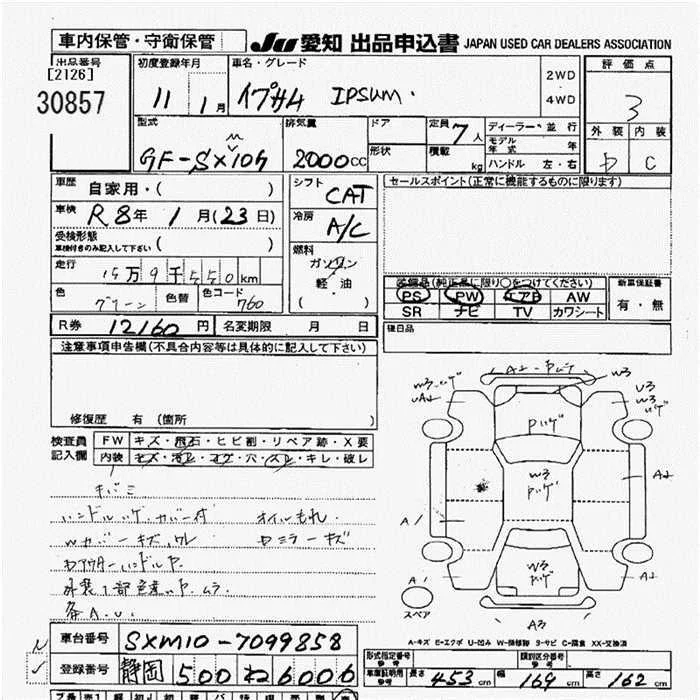 車内保管・守衛保管 JU 愛知 出品申込書 JAPAN USED CAR DEALERS ASSOCIATION
出品番号 初度登録年月 車名・グレード 評価点
[2126]
30857 11 1月 イプサム IPSUM. 2WD 4WD 3
型式 排気量 ドア 定員 7人 ディーラー・並行 外装 内装
形状 積載 kg モデル年式 年
GF-SXM10G 2000cc ハンドル 左・右 C
車歴 自家用・( ) シフト CAT セールスポイント(正常に機能するものに限ります)
車検 R8年 1月(23日) 冷房 A/C
受検形態 車検付きのみ記入して下さい ( )
燃料 ガソリン 軽・油 ( )
走行 15万9千550km
色 グリーン 色替 色コード 760
装備品(純正品に限り○をつけてください) 新車保証書
PS PW エアB AW 有・無
SR ナビ TV カワシート
R券 12160円 名変期限 月 日 後日品
注意事項申告欄(不具合内容等は具体的に記入して下さい)
修復歴 有 (箇所 )
検査員記入欄 FW キズ・飛石・ヒビ割・リペア跡・X要
内装 キズ・汚レ・コゲ・穴・スレ・キレ・破レ
キバミ
ハンドルハゲ・カバー付 オイルもれ
Wカバーキズ、ワレ
A1
外装1部色違い P.ムラ
各A.U.
W3
Pハゲ
W3
Pハゲ
W3
Pハゲ
U3
A2
A1
A1
スペア
A2
A3
A-キズ E-エクボ U-凹み W-補修跡 S-サビ C-腐食 XX-交換済
車台番号 SXM10-7099858
登録番号 静岡 500 ね 6006
形式指定番号 参考 類別区分番号 参考
車庫証明用 参考 長さ 453cm 幅 169cm 高さ 162cm